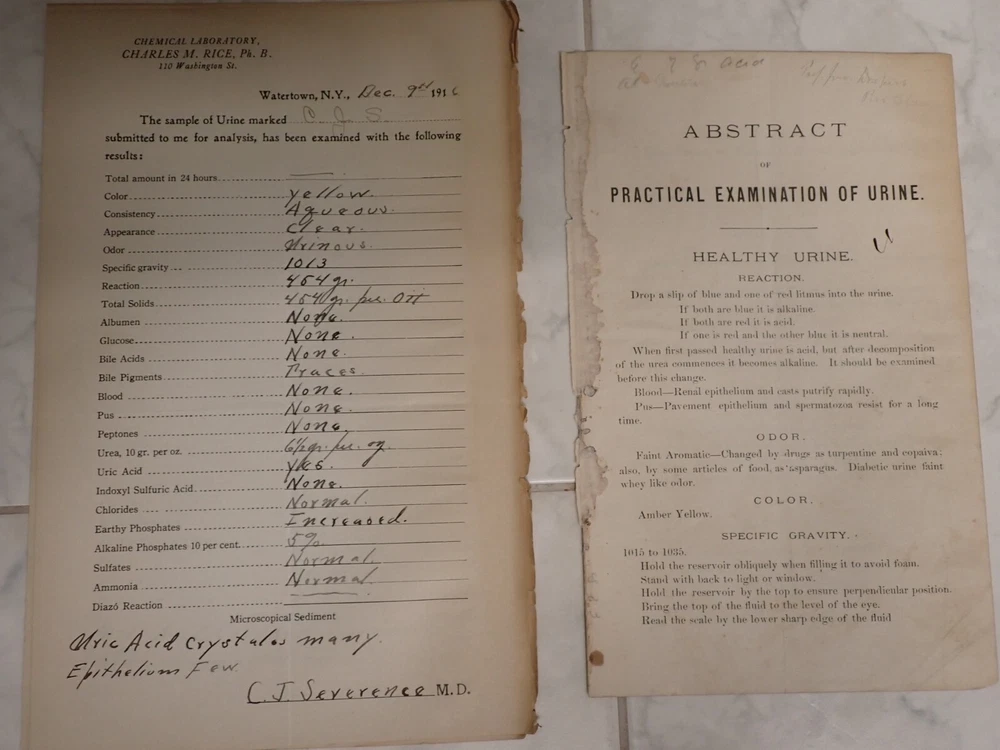 CHEMICAL LABORATORY,
CHARLES M. RICE, Ph. B.
110 Washington St.
Watertown, N.Y., Dec. 9th 1916
The sample of Urine marked C J S
submitted to me for analysis, has been examined with the following
results:
Total amount in 24 hours
Color yellow
Consistency Aqueous.
Appearance Clear.
Odor Urinous.
Specific gravity 1013
Reaction 454 gr.
Total Solids 454 gr. per.
Albumen None.
Glucose None.
Bile Acids None.
Bile Pigments Traces
Blood None.
Pus None.
Peptones None.
Urea, 10 gr. per oz. 6½ gr. per. oz.
Uric Acid yes.
Indoxyl Sulfuric Acid None.
Chlorides Normal.
Earthy Phosphates Increased.
Alkaline Phosphates 10 per cent. 5%
Sulfates Normal.
Ammonia Normal
Diazó Reaction
Microscopical Sediment
Uric Acid Crystales many.
Epithelium Few.
C. J. Severence M.D.
acid
ABSTRACT
OF
PRACTICAL EXAMINATION OF URINE.
HEALTHY URINE.
REACTION.
Drop a slip of blue and one of red litmus into the urine.
If both are blue it is alkaline.
If both are red it is acid.
If one is red and the other blue it is neutral.
When first passed healthy urine is acid, but after decomposition
of the urea commences it becomes alkaline. It should be examined
before this change.
Blood—Renal epithelium and casts putrify rapidly.
Pus—Pavement epithelium and spermatozoa resist for a long
time.
ODOR.
Faint Aromatic—Changed by drugs as turpentine and copaiva;
also, by some articles of food, as asparagus. Diabetic urine faint
whey like odor.
COLOR.
Amber Yellow.
SPECIFIC GRAVITY.
1015 to 1035.
Hold the reservoir obliquely when filling it to avoid foam.
Stand with back to light or window.
Hold the reservoir by the top to ensure perpendicular position.
Bring the top of the fluid to the level of the eye.
Read the scale by the lower sharp edge of the fluid